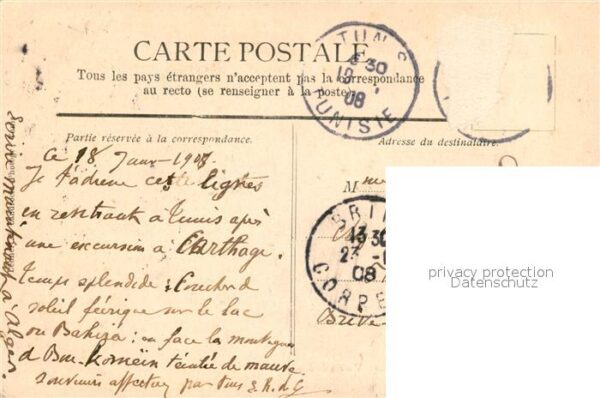 CARTE POSTALE
Tous les pays étrangers n'acceptent pas la correspondance
au recto (se renseigner à la poste)
TUNIS
8 30
18 -1
08
TUNISIE
Partie réservée à la correspondance.
Adresse du destinataire.
Ce 18 Janv - 1908.
Je t'adresse ces lignes
en rentrant à Tunis après
une excursion à Carthage.
Temps splendide : Coucher d
soleil féerique sur le lac
ou Bahira : en face la montagne
d Bou-Korneïn teintée de mauve
Souvenirs affectueux par tous
à Alger.
M
BRI
13 30
23 -1
08
CORRE
Brive
privacy protection
Datenschutz